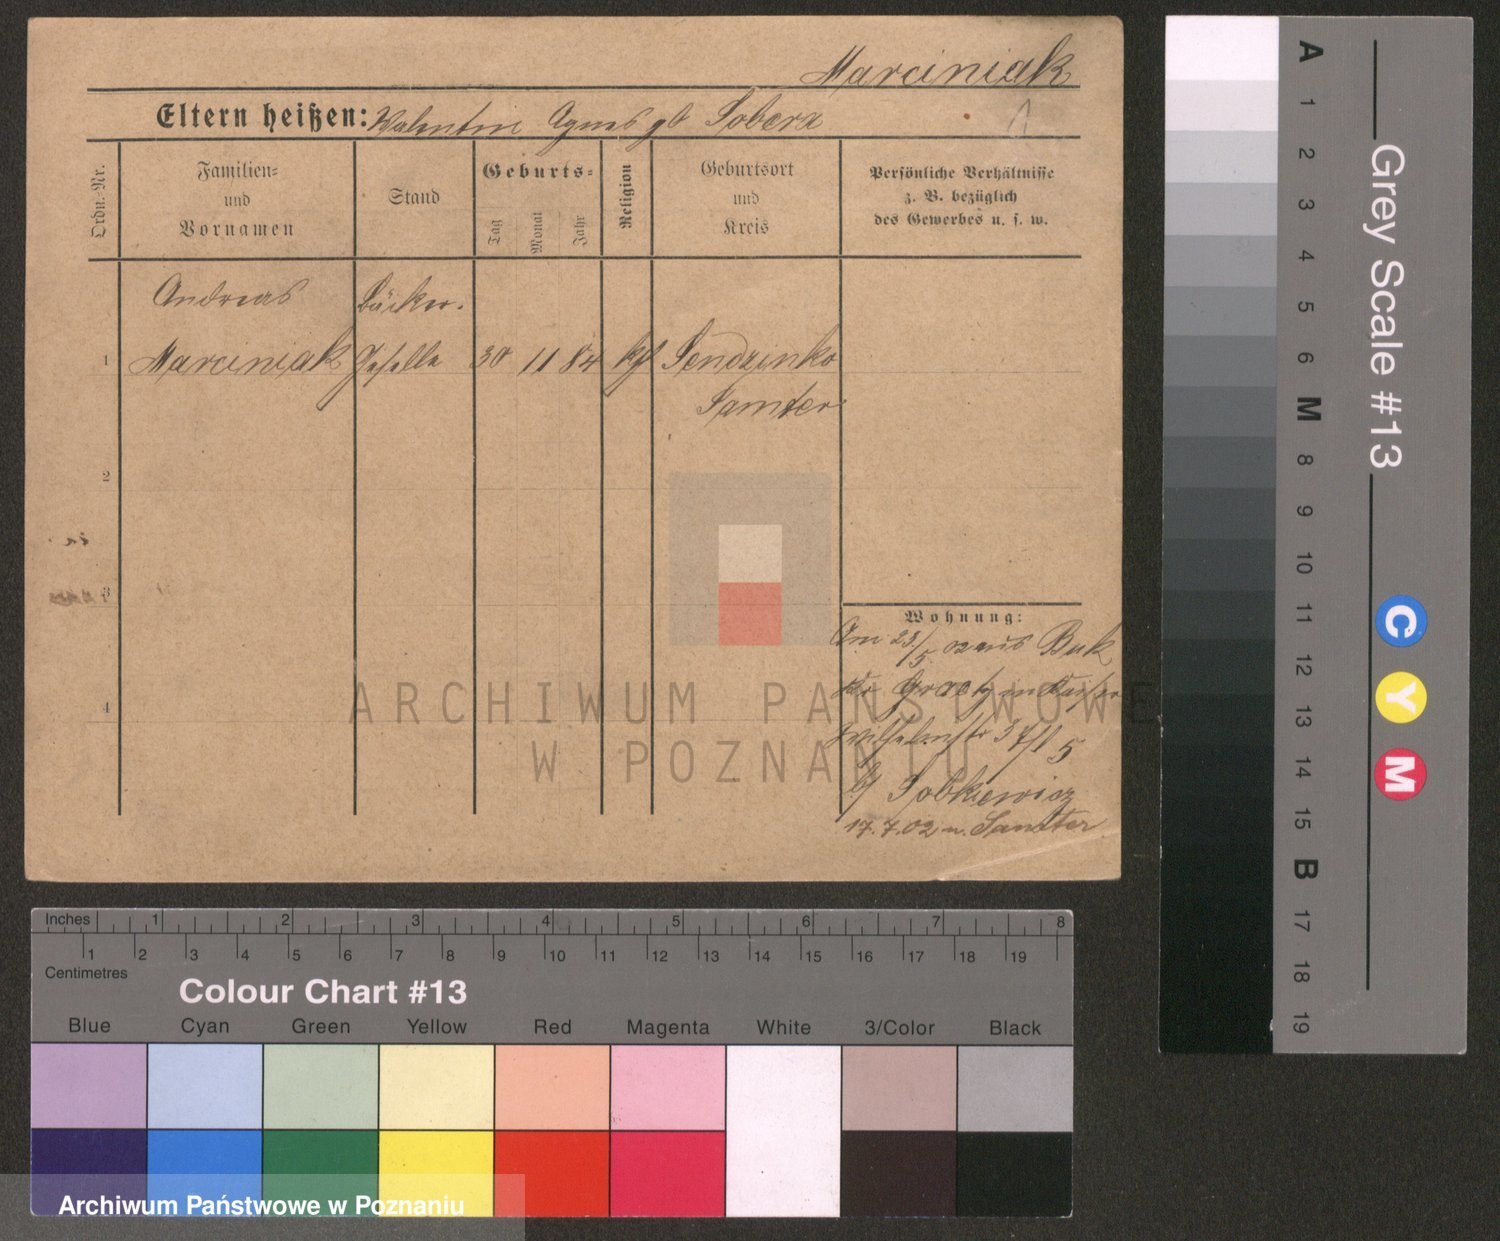 Marciniak
Eltern heißen: Valentin Agnes gb Sobera
1
Ordn.-Nr.
Familien=
und
Vornamen
Stand
Geburts=
Tag
Monat
Jahr
Religion
Geburtsort
und
Kreis
Persönliche Verhältnisse
z. B. bezüglich
des Gewerbes u. s. w.
Andreas Bäcker.
1 Marciniak Geselle 30 11 84 kf Sendzinko
Samter
2
3
4
Wohnung:
Am 23/5. 02 aus Buk
Kr. Graetz in Kaiser
Wilhelmstr 37/1 5
b/ Sobkiewicz
17.7.02 n. Samter
ARCHIWUM PAŃSTWOWE
W POZNANIU
Inches 1 2 3 4 5 6 7 8
1 2 3 4 5 6 7 8 9 10 11 12 13 14 15 16 17 18 19
Centimetres
Colour Chart #13
Blue Cyan Green Yellow Red Magenta White 3/Color Black
Archiwum Państwowe w Poznaniu
Grey Scale #13
A 1 2 3 4 5 6 M 8 9 10 11 12 13 14 15 B 17 18 19
C Y M